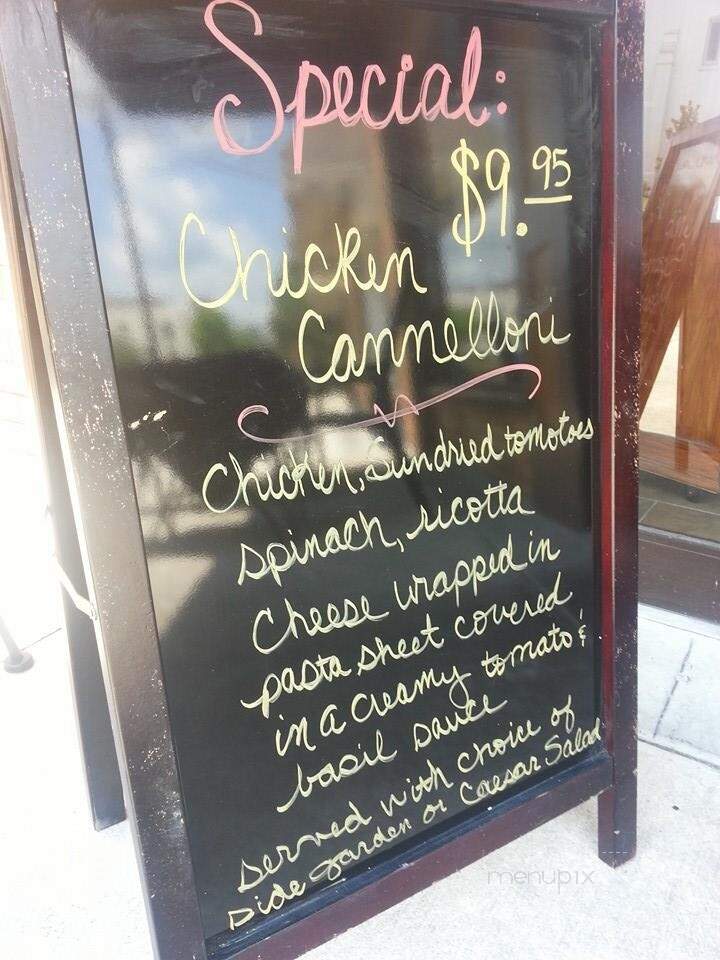 Special:
$9.95
Chicken
Cannelloni
Chicken, Sundried tomotoes
spinach, ricotta
Cheese wrapped in
pasta sheet covered
in a creamy tomato &
basil sauce
served with choice of
side garden or Caesar Salad
menupix